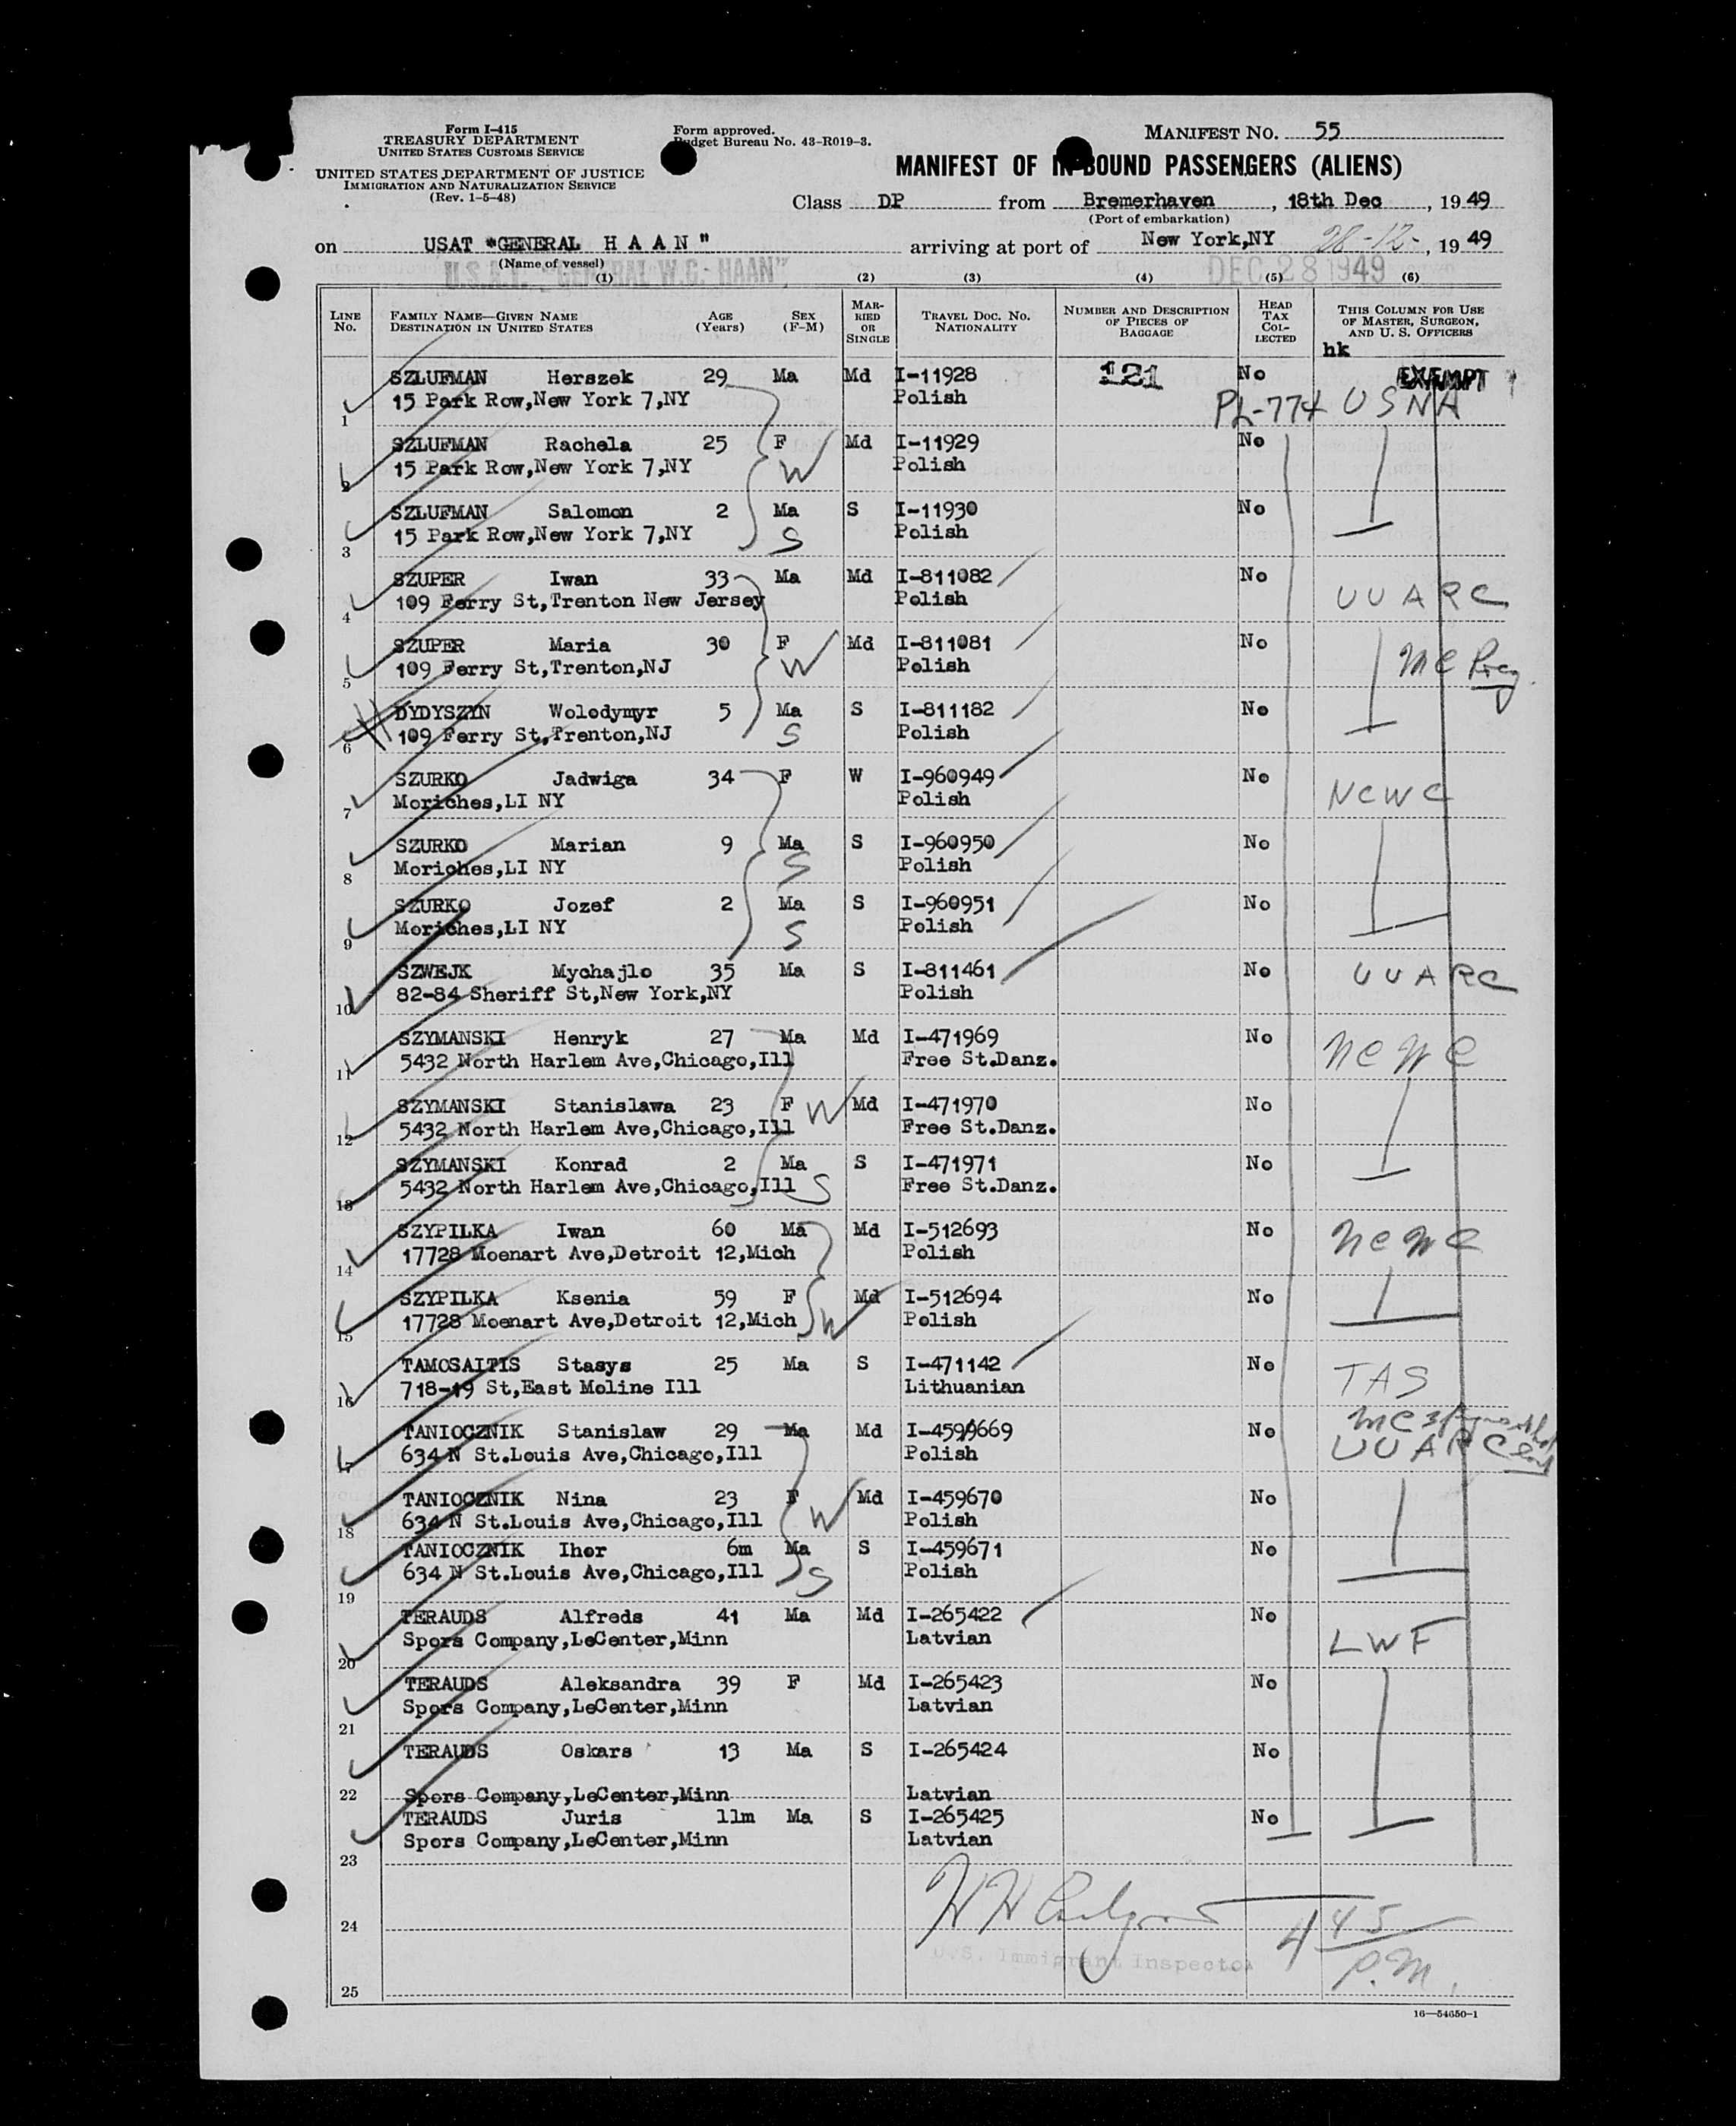 Form I-415
TREASURY DEPARTMENT
UNITED STATES CUSTOMS SERVICE
UNITED STATES DEPARTMENT OF JUSTICE
IMMIGRATION AND NATURALIZATION SERVICE
(Rev. 1-5-48)
Form approved.
Budget Bureau No. 43-R019-3.
MANIFEST NO. 55
MANIFEST OF INBOUND PASSENGERS (ALIENS)
Class DP from Bremerhaven, 18th Dec, 1949
(Port of embarkation)
on USAT "GENERAL H A A N" arriving at port of New York,NY 28-12-, 1949
(Name of vessel)
U.S.A.T. "GENERAL W.G. HAAN" DEC 28 1949
(1) (2) (3) (4) (5) (6)
LINE NO. FAMILY NAME—GIVEN NAME DESTINATION IN UNITED STATES AGE (Years) SEX (F-M) MARRIED OR SINGLE TRAVEL DOC. NO. NATIONALITY NUMBER AND DESCRIPTION OF PIECES OF BAGGAGE HEAD TAX COLLECTED THIS COLUMN FOR USE OF MASTER, SURGEON, AND U. S. OFFICERS
hk
SZLUFMAN Herszek 29 Ma Md I-11928 121 No EXEMPT
1 15 Park Row,New York 7,NY Polish PL-774 USNA
SZLUFMAN Rachela 25 F Md I-11929 No
2 15 Park Row,New York 7,NY W Polish
SZLUFMAN Salomon 2 Ma S I-11930 No
3 15 Park Row,New York 7,NY S Polish
SZUPER Iwan 33 Ma Md I-811082 No
4 109 Ferry St,Trenton New Jersey Polish UUARC
SZUPER Maria 30 F Md I-811081 No
5 109 Ferry St,Trenton,NJ W Polish MC Preg.
DYDYSZYN Wolodymyr 5 Ma S I-811182 No
6 109 Ferry St,Trenton,NJ S Polish
SZURKO Jadwiga 34 F W I-960949 No
7 Moriches,LI NY Polish NCWC
SZURKO Marian 9 Ma S I-960950 No
8 Moriches,LI NY S Polish
SZURKO Jozef 2 Ma S I-960951 No
9 Moriches,LI NY S Polish
SZWEJK Mychajlo 35 Ma S I-811461 No UUARC
10 82-84 Sheriff St,New York,NY Polish
SZYMANSKI Henryk 27 Ma Md I-471969 No NCWC
11 5432 North Harlem Ave,Chicago,Ill Free St.Danz.
SZYMANSKI Stanislawa 23 F W Md I-471970 No
12 5432 North Harlem Ave,Chicago,Ill Free St.Danz.
SZYMANSKI Konrad 2 Ma S I-471971 No
13 5432 North Harlem Ave,Chicago,Ill S Free St.Danz.
SZYPILKA Iwan 60 Ma Md I-512693 No NCWC
14 17728 Moenart Ave,Detroit 12,Mich Polish
SZYPILKA Ksenia 59 F Md I-512694 No
15 17728 Moenart Ave,Detroit 12,Mich W Polish
TAMOSAITIS Stasys 25 Ma S I-471142 No TAS
16 718-19 St,East Moline Ill Lithuanian
TANIOCZNIK Stanislaw 29 Ma Md I-459669 No MC
17 634 N St.Louis Ave,Chicago,Ill Polish UUARC
TANIOCZNIK Nina 23 F W Md I-459670 No
18 634 N St.Louis Ave,Chicago,Ill Polish
TANIOCZNIK Ihor 6m Ma S I-459671 No
19 634 N St.Louis Ave,Chicago,Ill S Polish
TERAUDS Alfreds 41 Ma Md I-265422 No
20 Spors Company,LeCenter,Minn Latvian LWF
TERAUDS Aleksandra 39 F Md I-265423 No
21 Spors Company,LeCenter,Minn Latvian
TERAUDS Oskars 13 Ma S I-265424 No
22 Spors Company,LeCenter,Minn Latvian
TERAUDS Juris 11m Ma S I-265425 No
Spors Company,LeCenter,Minn Latvian
23
24 4 45
U.S. Immigrant Inspector P.M.
25
16—54650-1